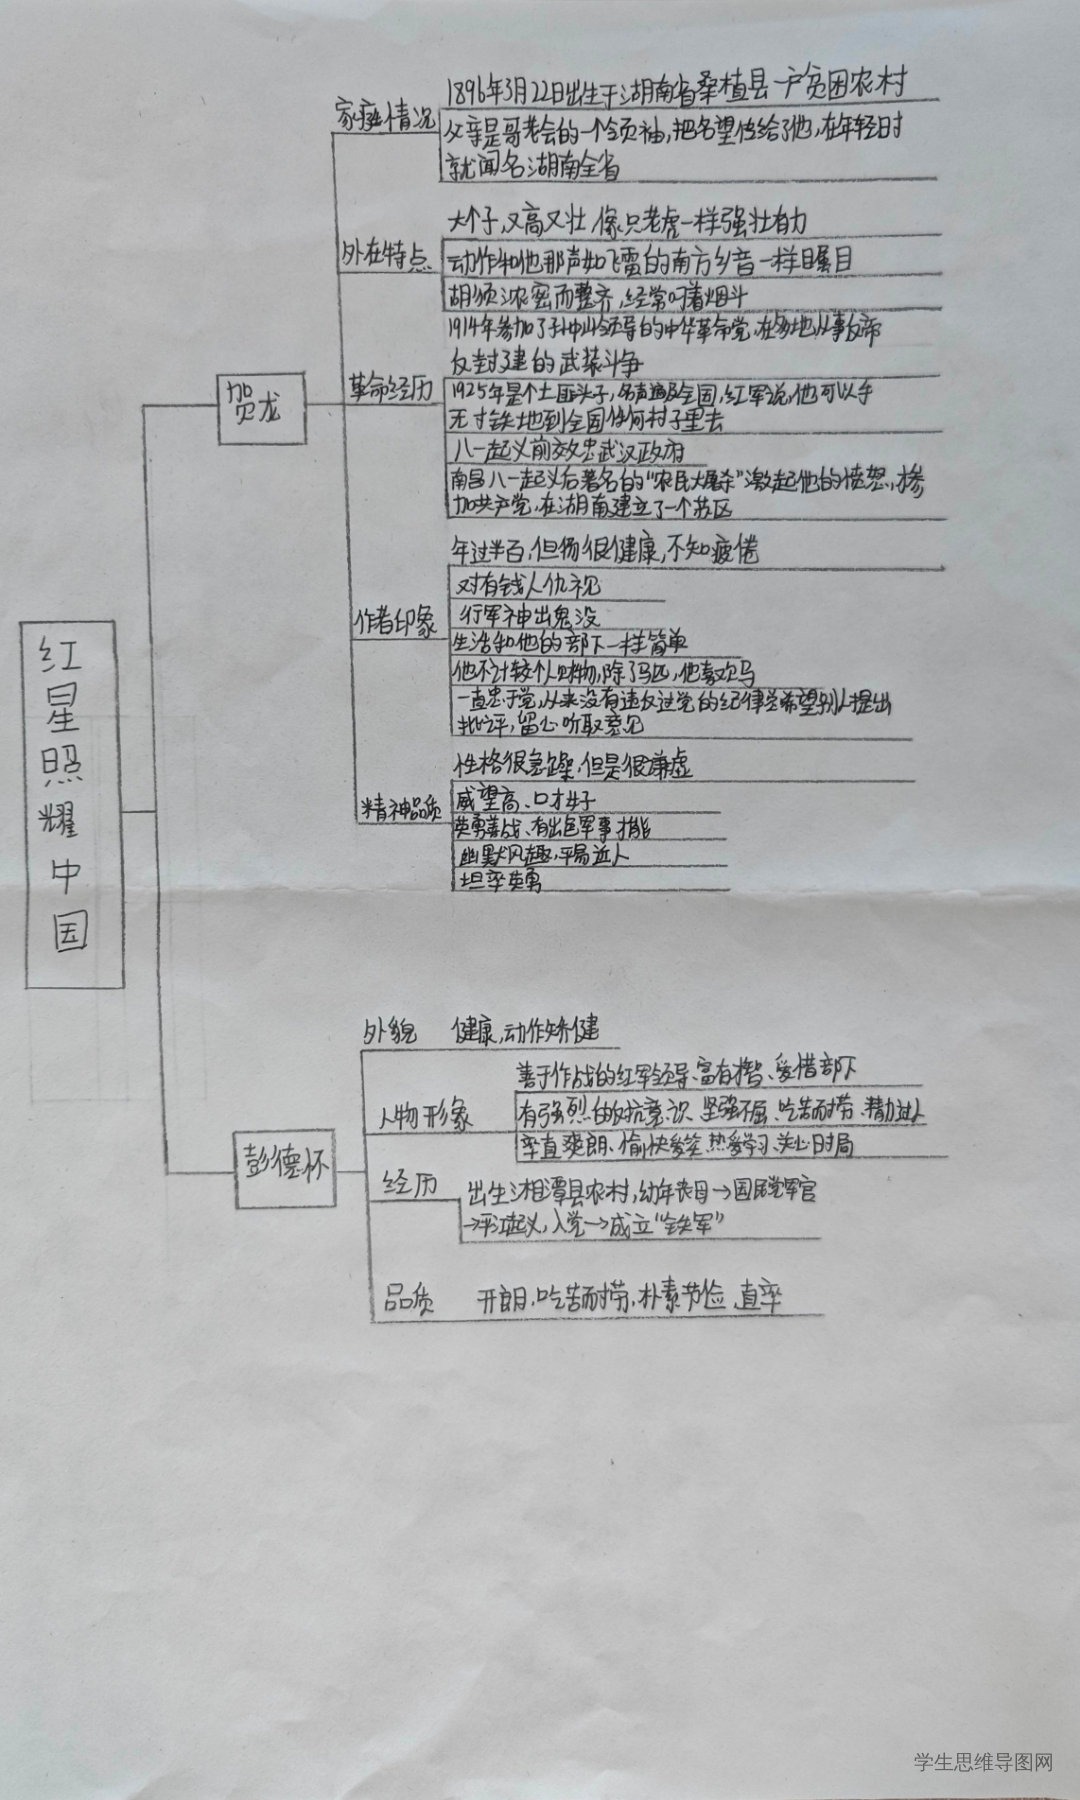 红星照耀中国
贺龙
家庭情况
1896年3月22日出生于湖南省桑植县一户贫困农村
父亲是哥老会的一个领袖,把名望传给了他,在年轻时
就闻名湖南全省
外在特点
大个子,又高又壮,像只老虎一样强壮有力
动作和他那声如飞雷的南方乡音一样瞩目
胡须浓密而整齐,经常叼着烟斗
革命经历
1914年参加了孙中山领导的中华革命党,在多地从事反帝
反封建的武装斗争
1925年是个土匪头子,名声遍及全国,红军说,他可以手
无寸铁地到全国任何村子里去
八一起义前效忠武汉政府
南昌八一起义后著名的“农民大屠杀”激起他的愤怒,
加共产党,在湖南建立了一个苏区
作者印象
年过半百,但仍很健康,不知疲倦
对有钱人仇视
行军神出鬼没
生活和他的部下一样简单
他不计较个人财物,除了马匹,他喜欢马
一直忠于党,从来没有违反过党的纪律,总希望别人提出
批评,留心听取意见
精神品质
性格很急躁,但是很谦虚
威望高、口才好
英勇善战、有出色军事才能
幽默风趣,平易近人
坦率英勇
彭德怀
外貌 健康,动作矫健
人物形象
善于作战的红军领导、富有才智、爱惜部下
有强烈的反抗意识、坚强不屈、吃苦耐劳、精力过人
率直爽朗、愉快爱笑、热爱学习、关心时局
经历
出生湘潭县农村,幼年丧母→国民党军官
→平江起义,入党→成立“铁军”
品质 开朗,吃苦耐劳,朴素节俭、直率
学生思维导图网